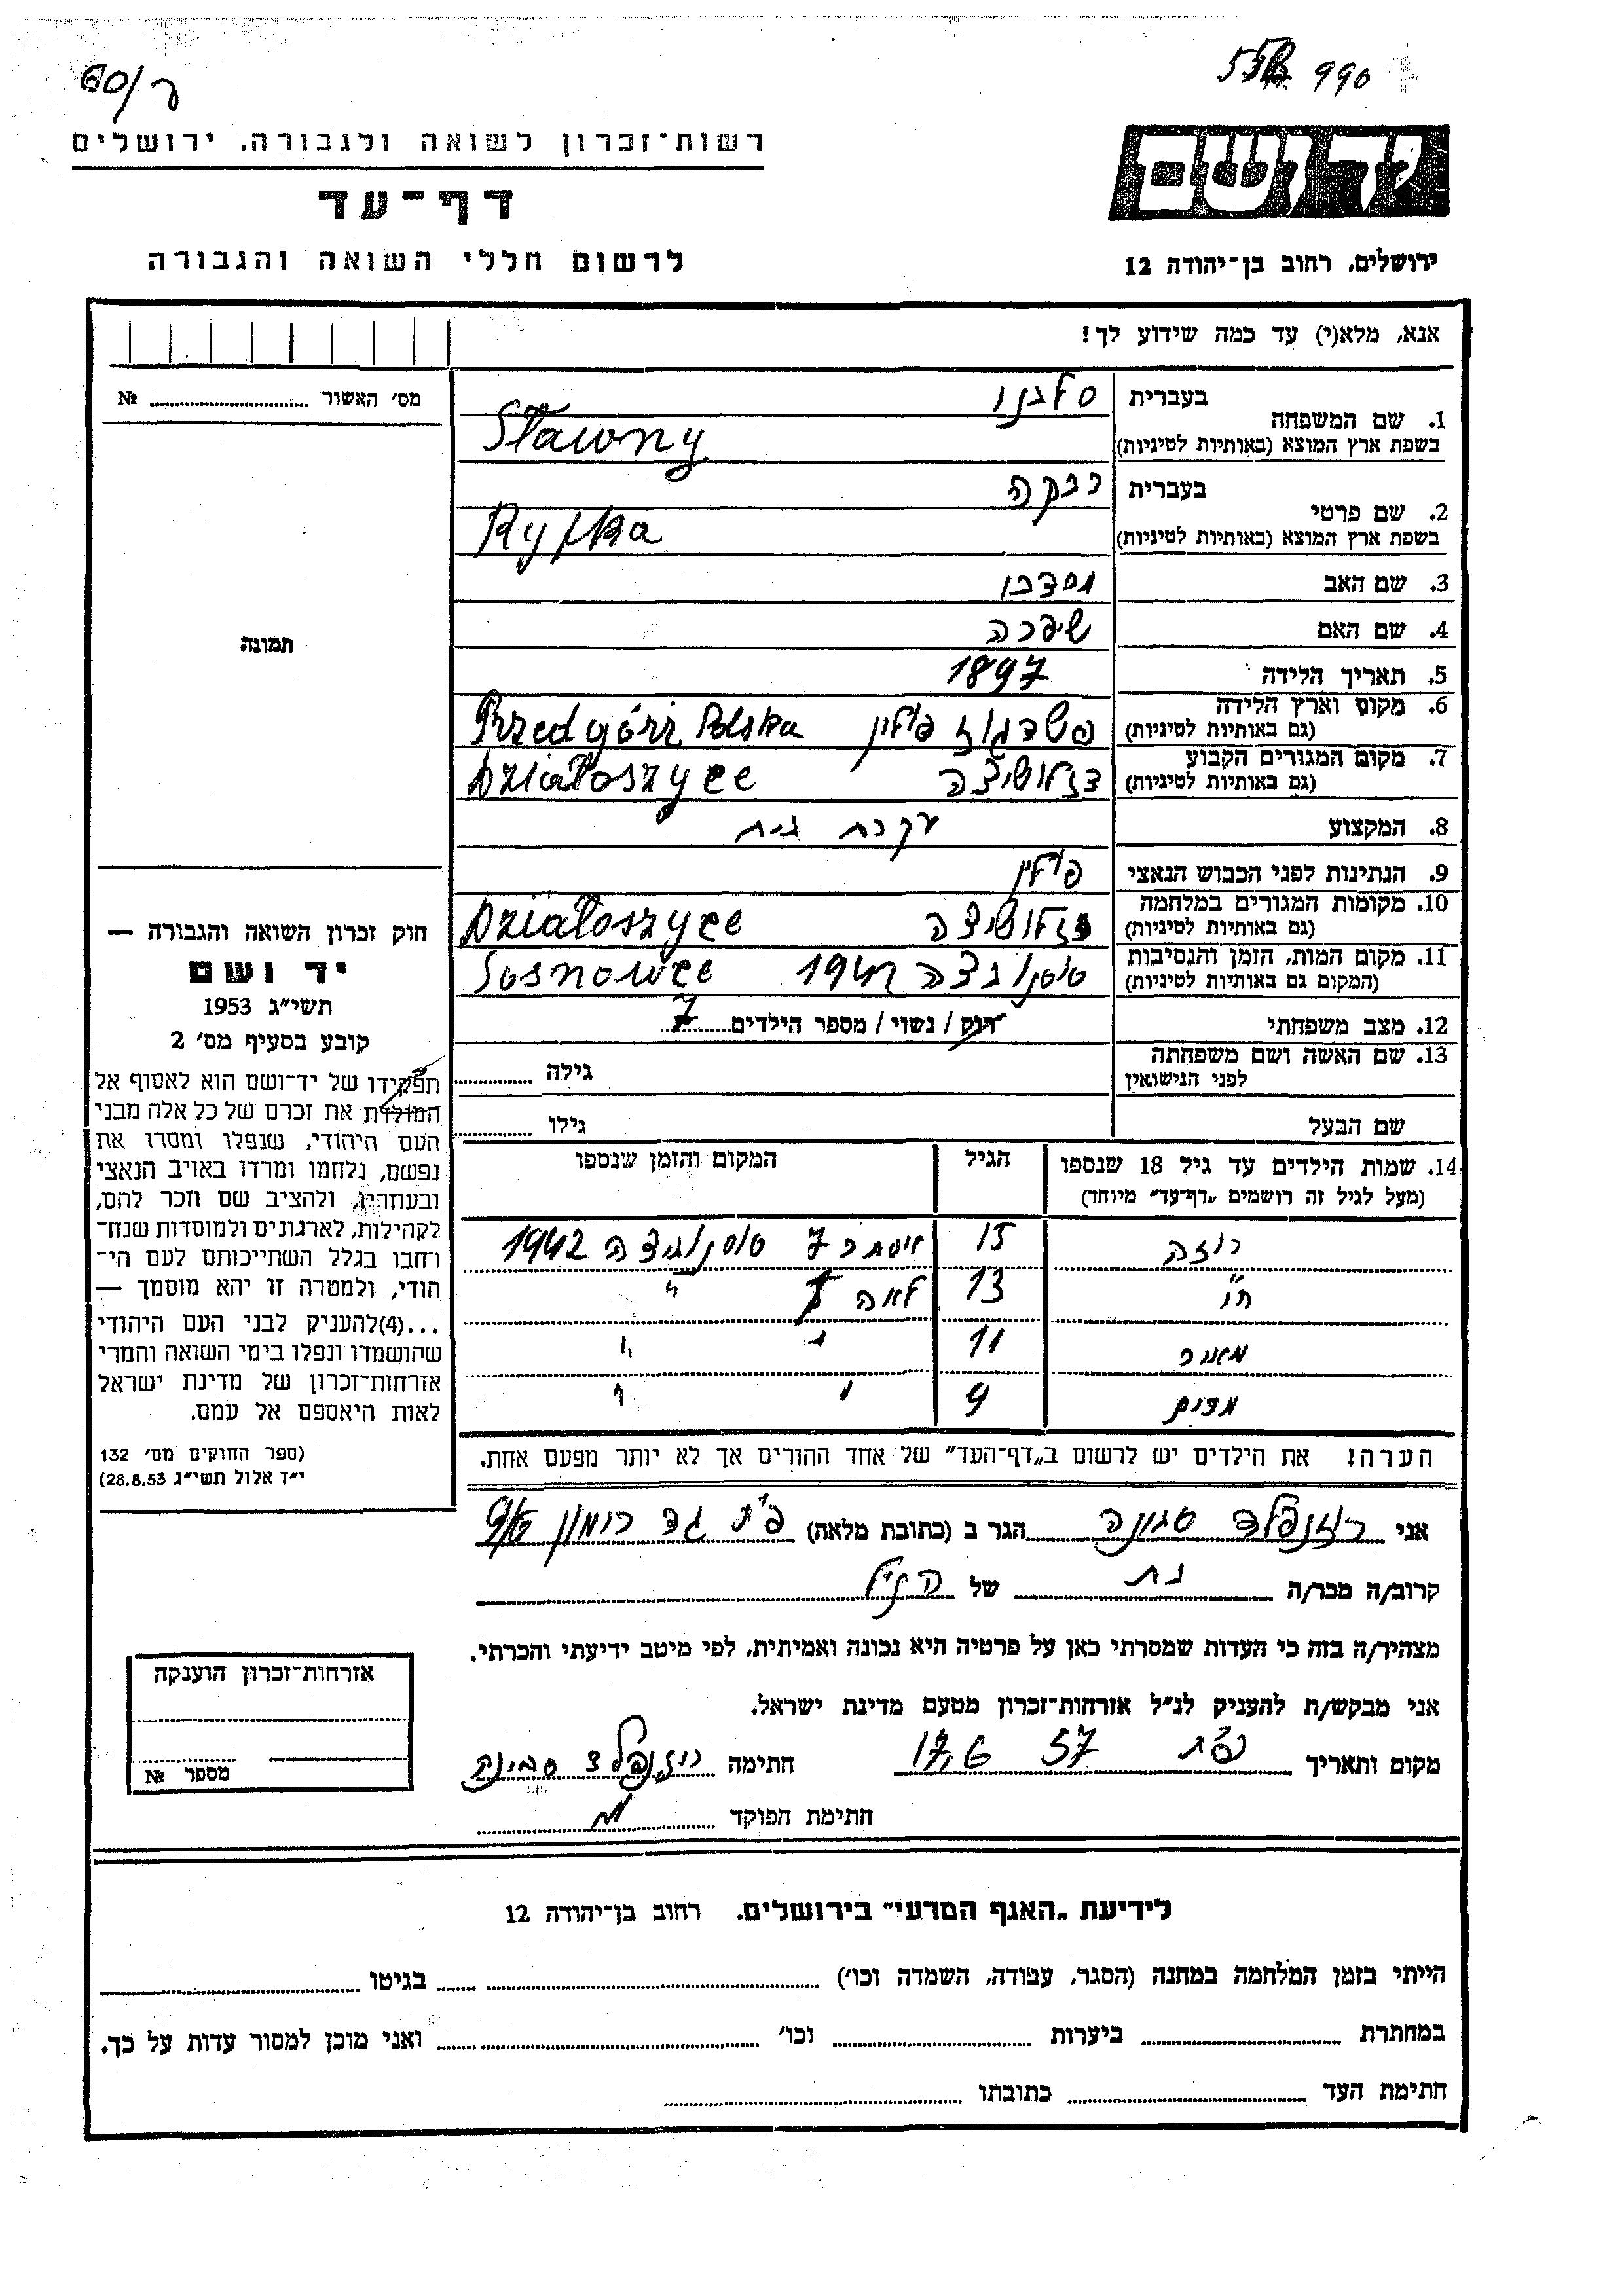 60/ר
990
רשות־זכרון לשואה ולגבורה, ירושלים
דף־עד
לרשום חללי השואה והגבורה
ידושם
ירושלים, רחוב בן־יהודה 12
אנא, מלא(י) עד כמה שידוע לך!
מס׳ האשור № 
1. שם המשפחה
בעברית
בשפת ארץ המוצא (באותיות לטיניות)
Sławny
2. שם פרטי
בעברית רבקה
בשפת ארץ המוצא (באותיות לטיניות)
Ryfka
3. שם האב
4. שם האם שיפרה
5. תאריך הלידה 1897
6. מקום וארץ הלידה
(גם באותיות לטיניות)
פולין Przedgórz Polska
7. מקום המגורים הקבוע
(גם באותיות לטיניות)
דזלושיצה Działoszyce
8. המקצוע עקרת בית
9. הנתינות לפני הכבוש הנאצי פולין
10. מקומות המגורים במלחמה
(גם באותיות לטיניות)
דזלושיצה Działoszyce
11. מקום המות, הזמן והנסיבות
(המקום גם באותיות לטיניות)
סוסנוביצה 1942 Sosnowice
12. מצב משפחתי רוק / נשוי / מספר הילדים 7
13. שם האשה ושם משפחתה
לפני הנישואין
גילה
שם הבעל גילו
14. שמות הילדים עד גיל 18 שנספו
(מעל לגיל זה רושמים „דף־עד” מיוחד)
הגיל
המקום והזמן שנספו
רוזה 15 אסתר 7 סוסנוביצה 1942
13 לאה "
מאיר 11 " "
9 " "
הערה! את הילדים יש לרשום ב„דף־העד” של אחד ההורים אך לא יותר מפעם אחת.
תמונה
חוק זכרון השואה והגבורה —
יד ושם
תשי״ג 1953
קובע בסעיף מס׳ 2
תפקידו של יד־ושם הוא לאסוף אל
המולדת את זכרם של כל אלה מבני
העם היהודי, שנפלו ומסרו את
נפשם, נלחמו ומרדו באויב הנאצי
ובעוזריו, ולהציב שם וזכר להם,
לקהילות, לארגונים ולמוסדות שנח־
רחבו בגלל השתייכותם לעם הי־
הודי, ולמטרה זו יהא מוסמך —
...(4)להעניק לבני העם היהודי
שהושמדו ונפלו בימי השואה והמרי
אזרחות־זכרון של מדינת ישראל
לאות היאספם אל עמם.
(ספר החוקים מס׳ 132
י״ז אלול תשי״ג 28.8.53)
אני רוזנפלד סבינה הגר ב (כתובת מלאה) פ״ת גד
קרוב/ה מכר/ה בת של הנ״ל
מצהיר/ה בזה כי העדות שמסרתי כאן על פרטיה היא נכונה ואמיתית, לפי מיטב ידיעתי והכרתי.
אני מבקש/ת להעניק לנ״ל אזרחות־זכרון מטעם מדינת ישראל.
מקום ותאריך פ״ת 17.6 57 חתימה רוזנפלד סבינה
חתימת הפוקד
אזרחות־זכרון הוענקה
מספר №
לידיעת „האגף המדעי” בירושלים, רחוב בן־יהודה 12
הייתי בזמן המלחמה במחנה (הסגר, עבודה, השמדה וכו׳) בגיטו
במחתרת ביערות וכו׳ ואני מוכן למסור עדות על כך.
חתימת העד כתובתו